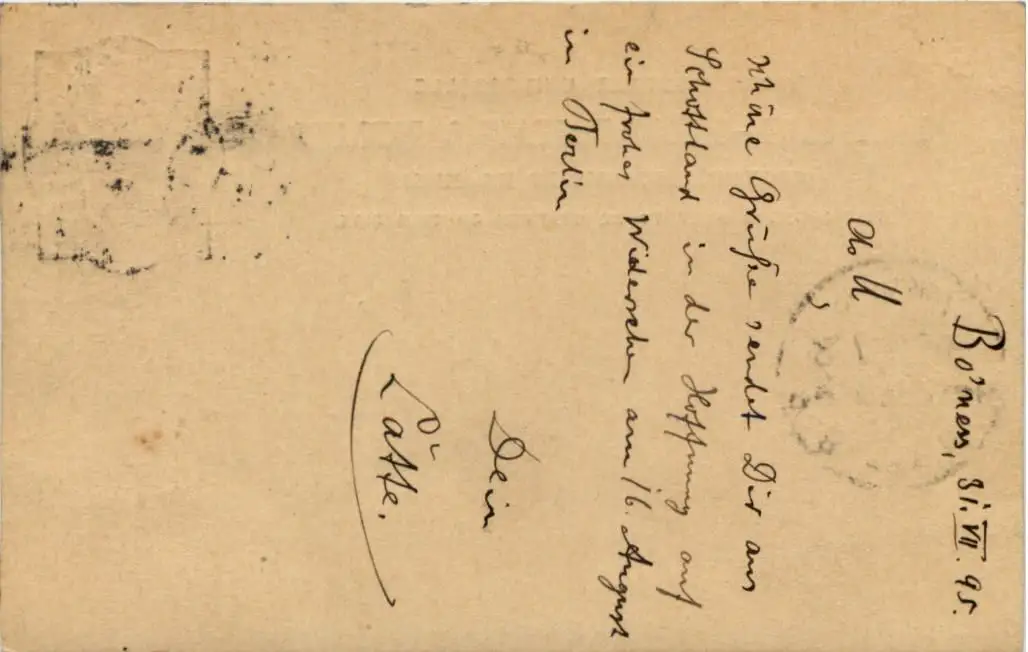 Bo'ness, 31.VII.95.
Schöne Grüße sendet Dir aus
Schottland in der Hoffnung auf
ein frohes Wiedersehen am 16. August
in Berlin
Dein